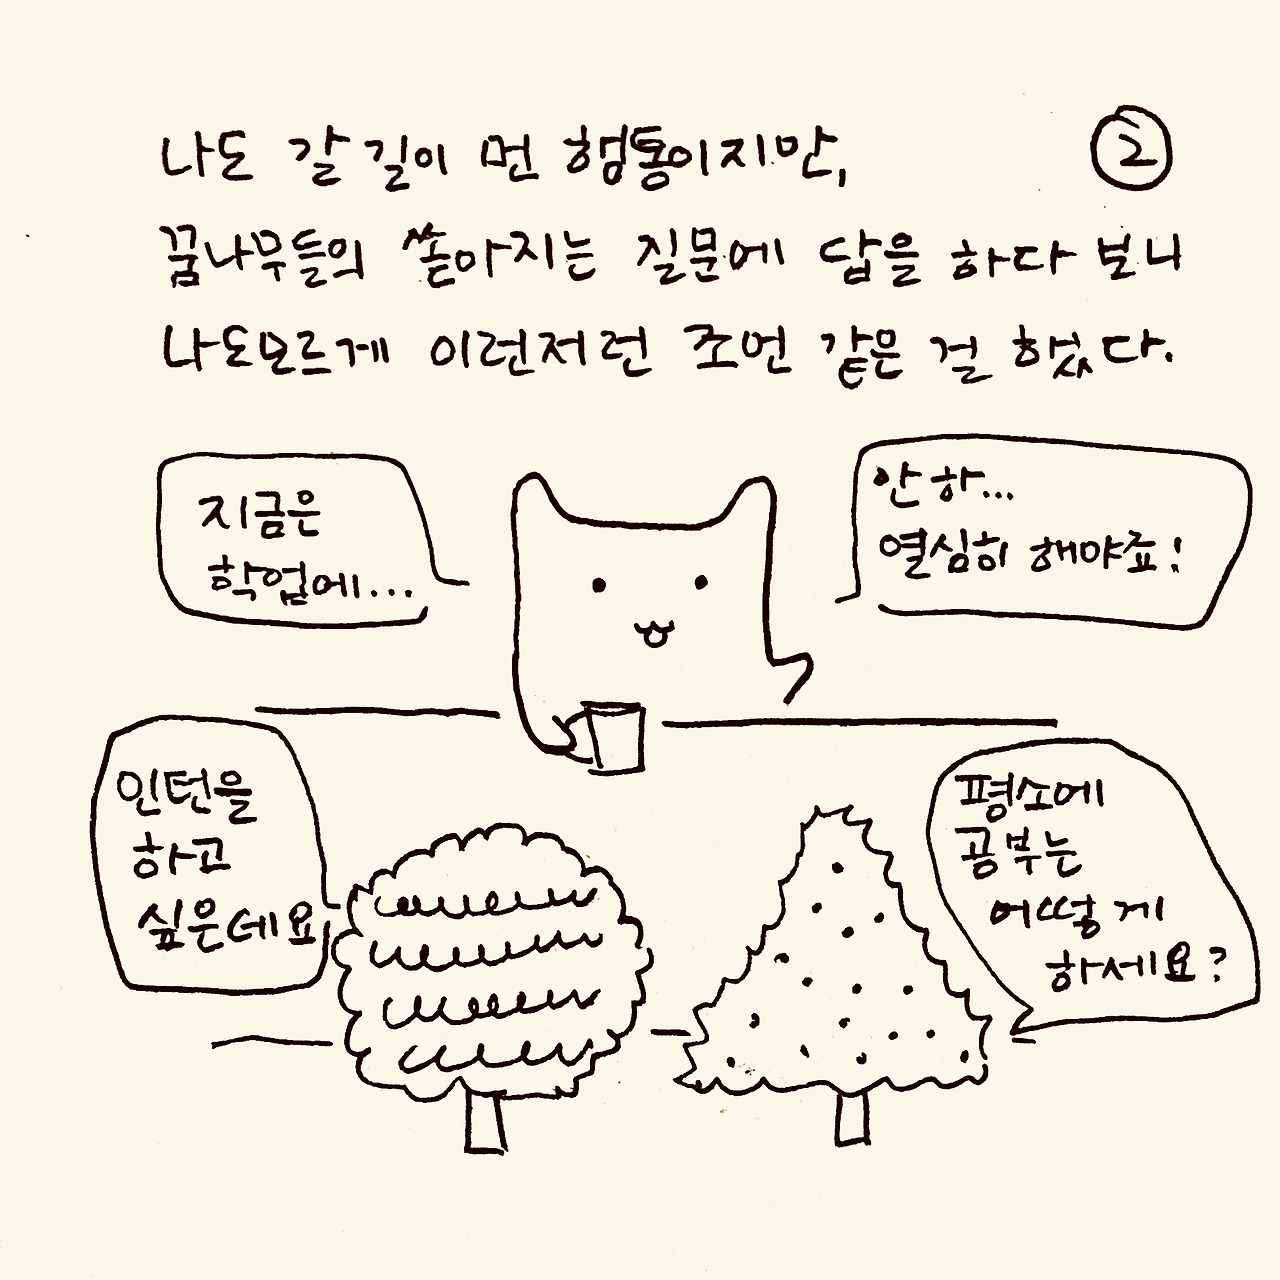 나도 갈 길이 먼 햄동이지만,
②
꿈나무들의 쏟아지는 질문에 답을 하다 보니
나도모르게 이런저런 조언 같은 걸 했다.
지금은
학업에...
안 하...
열심히 해야죠!
인턴을
하고
싶은데요
평소에
공부는
어떻게
하세요?